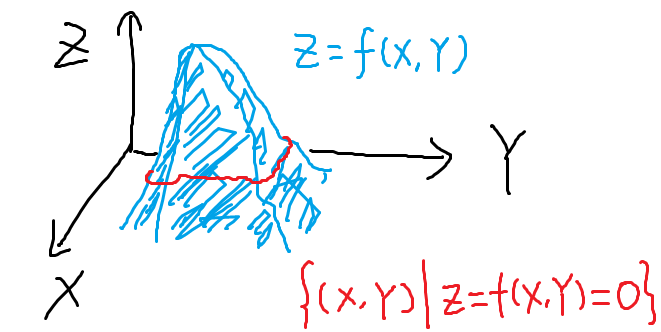 Z
Z=f(X,Y)
Y
X
{(X,Y)|Z=f(X,Y)=0}